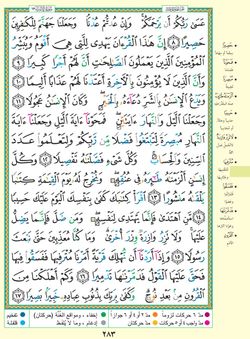 عَسَىٰ رَبُّكُمْ أَن يَرْحَمَكُمْ ۚ وَإِنْ عُدتُّمْ عُدْنَا ۘ وَجَعَلْنَا جَهَنَّمَ لِلْكَٰفِرِينَ
حَصِيرًا ٨ إِنَّ هَٰذَا ٱلْقُرْءَانَ يَهْدِى لِلَّتِى هِىَ أَقْوَمُ وَيُبَشِّرُ
ٱلْمُؤْمِنِينَ ٱلَّذِينَ يَعْمَلُونَ ٱلصَّٰلِحَٰتِ أَنَّ لَهُمْ أَجْرًا كَبِيرًا ٩
وَأَنَّ ٱلَّذِينَ لَا يُؤْمِنُونَ بِٱلْءَاخِرَةِ أَعْتَدْنَا لَهُمْ عَذَابًا أَلِيمًا ١٠
وَيَدْعُ ٱلْإِنسَٰنُ بِٱلشَّرِّ دُعَآءَهُۥ بِٱلْخَيْرِ ۖ وَكَانَ ٱلْإِنسَٰنُ عَجُولًا ١١
وَجَعَلْنَا ٱلَّيْلَ وَٱلنَّهَارَ ءَايَتَيْنِ ۖ فَمَحَوْنَآ ءَايَةَ ٱلَّيْلِ وَجَعَلْنَآ ءَايَةَ
ٱلنَّهَارِ مُبْصِرَةً لِّتَبْتَغُوا۟ فَضْلًا مِّن رَّبِّكُمْ وَلِتَعْلَمُوا۟ عَدَدَ
ٱلسِّنِينَ وَٱلْحِسَابَ ۚ وَكُلَّ شَىْءٍ فَصَّلْنَٰهُ تَفْصِيلًا ١٢ وَكُلَّ
إِنسَٰنٍ أَلْزَمْنَٰهُ طَٰٓئِرَهُۥ فِى عُنُقِهِۦ ۖ وَنُخْرِجُ لَهُۥ يَوْمَ ٱلْقِيَٰمَةِ كِتَٰبًا
يَلْقَىٰهُ مَنشُورًا ١٣ ٱقْرَأْ كِتَٰبَكَ كَفَىٰ بِنَفْسِكَ ٱلْيَوْمَ عَلَيْكَ حَسِيبًا
١٤ مَّنِ ٱهْتَدَىٰ فَإِنَّمَا يَهْتَدِى لِنَفْسِهِۦ ۖ وَمَن ضَلَّ فَإِنَّمَا يَضِلُّ
عَلَيْهَا ۚ وَلَا تَزِرُ وَازِرَةٌ وِزْرَ أُخْرَىٰ ۗ وَمَا كُنَّا مُعَذِّبِينَ حَتَّىٰ نَبْعَثَ
رَسُولًا ١٥ وَإِذَآ أَرَدْنَآ أَن نُّهْلِكَ قَرْيَةً أَمَرْنَا مُتْرَفِيهَا فَفَسَقُوا۟ فِيهَا
فَحَقَّ عَلَيْهَا ٱلْقَوْلُ فَدَمَّرْنَٰهَا تَدْمِيرًا ١٦ وَكَمْ أَهْلَكْنَا مِنَ
ٱلْقُرُونِ مِنۢ بَعْدِ نُوحٍ ۗ وَكَفَىٰ بِرَبِّكَ بِذُنُوبِ عِبَادِهِۦ خَبِيرًۢا بَصِيرًا ١٧
٢٨٣